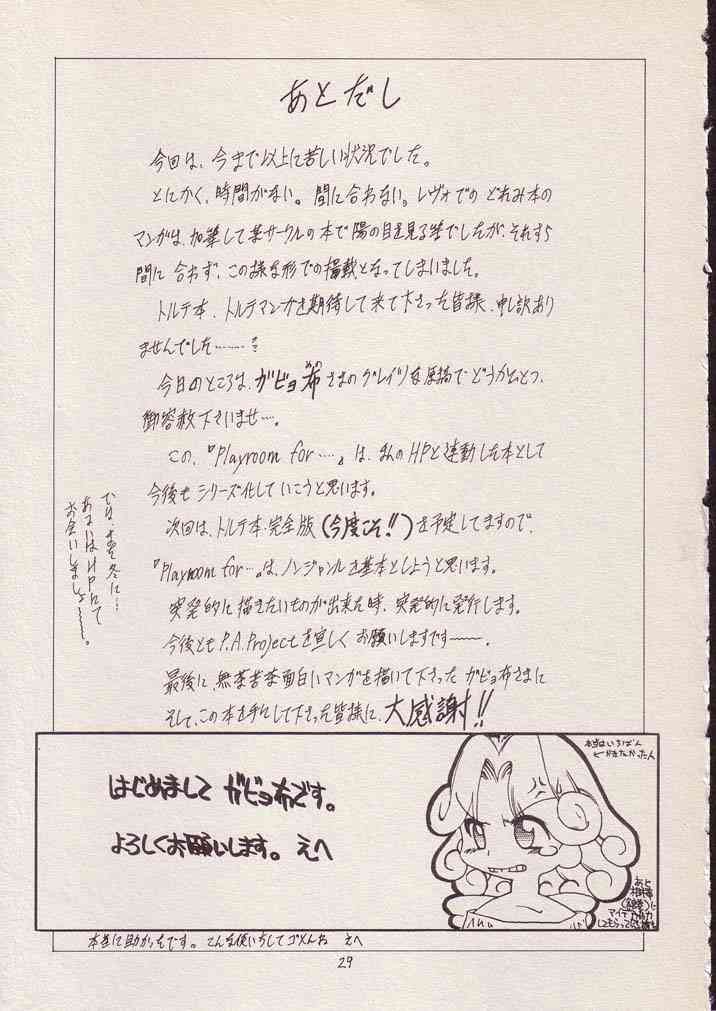 あとだし
今回は、今まで以上に苦しい状況でした。
とにかく、時間がない。間に合わない。レヴォでの どれみ本の
マンガは、加筆して某サークルの本で陽の目を見る筈でしたが、それすら
間に合わず、この様な形での掲載となってしまいました。
トルテ本、トルテマンガを期待して来て下さった皆様、申し訳あり
ませんでした………
今日のところは、ガビョ布さまのグレイツな原稿でどうかひとつ、
御容赦下さいませ…。
この、『Playroom for…』は、まんのHPと連動した本として
今後もシリーズ化していこうと思います。
次回は、トルテ本・完全版(今度こそ!!)を予定してますので、
『Playroom for…』は、ノンジャンルを基本としようと思います。
突発的に描きたいものが出来た時、突発的に発行します。
今後ともP.A.Projectを宜しくお願いしますです――。
最後に、無茶苦茶面白いマンガを描いて下さった ガビョ布さまに
そして、この本を手にして下さった皆様に、大感謝!!
では、冬に…
あるいはHPにて
お会いしましょ――。
はじめまして ガビョ布です。
よろしくお願いします。 えへ
本当はいちばん
かきたかった人
あと
マイデ
してもらって
本当に助かったです。こんな使いちしてゴメンね えへ
29